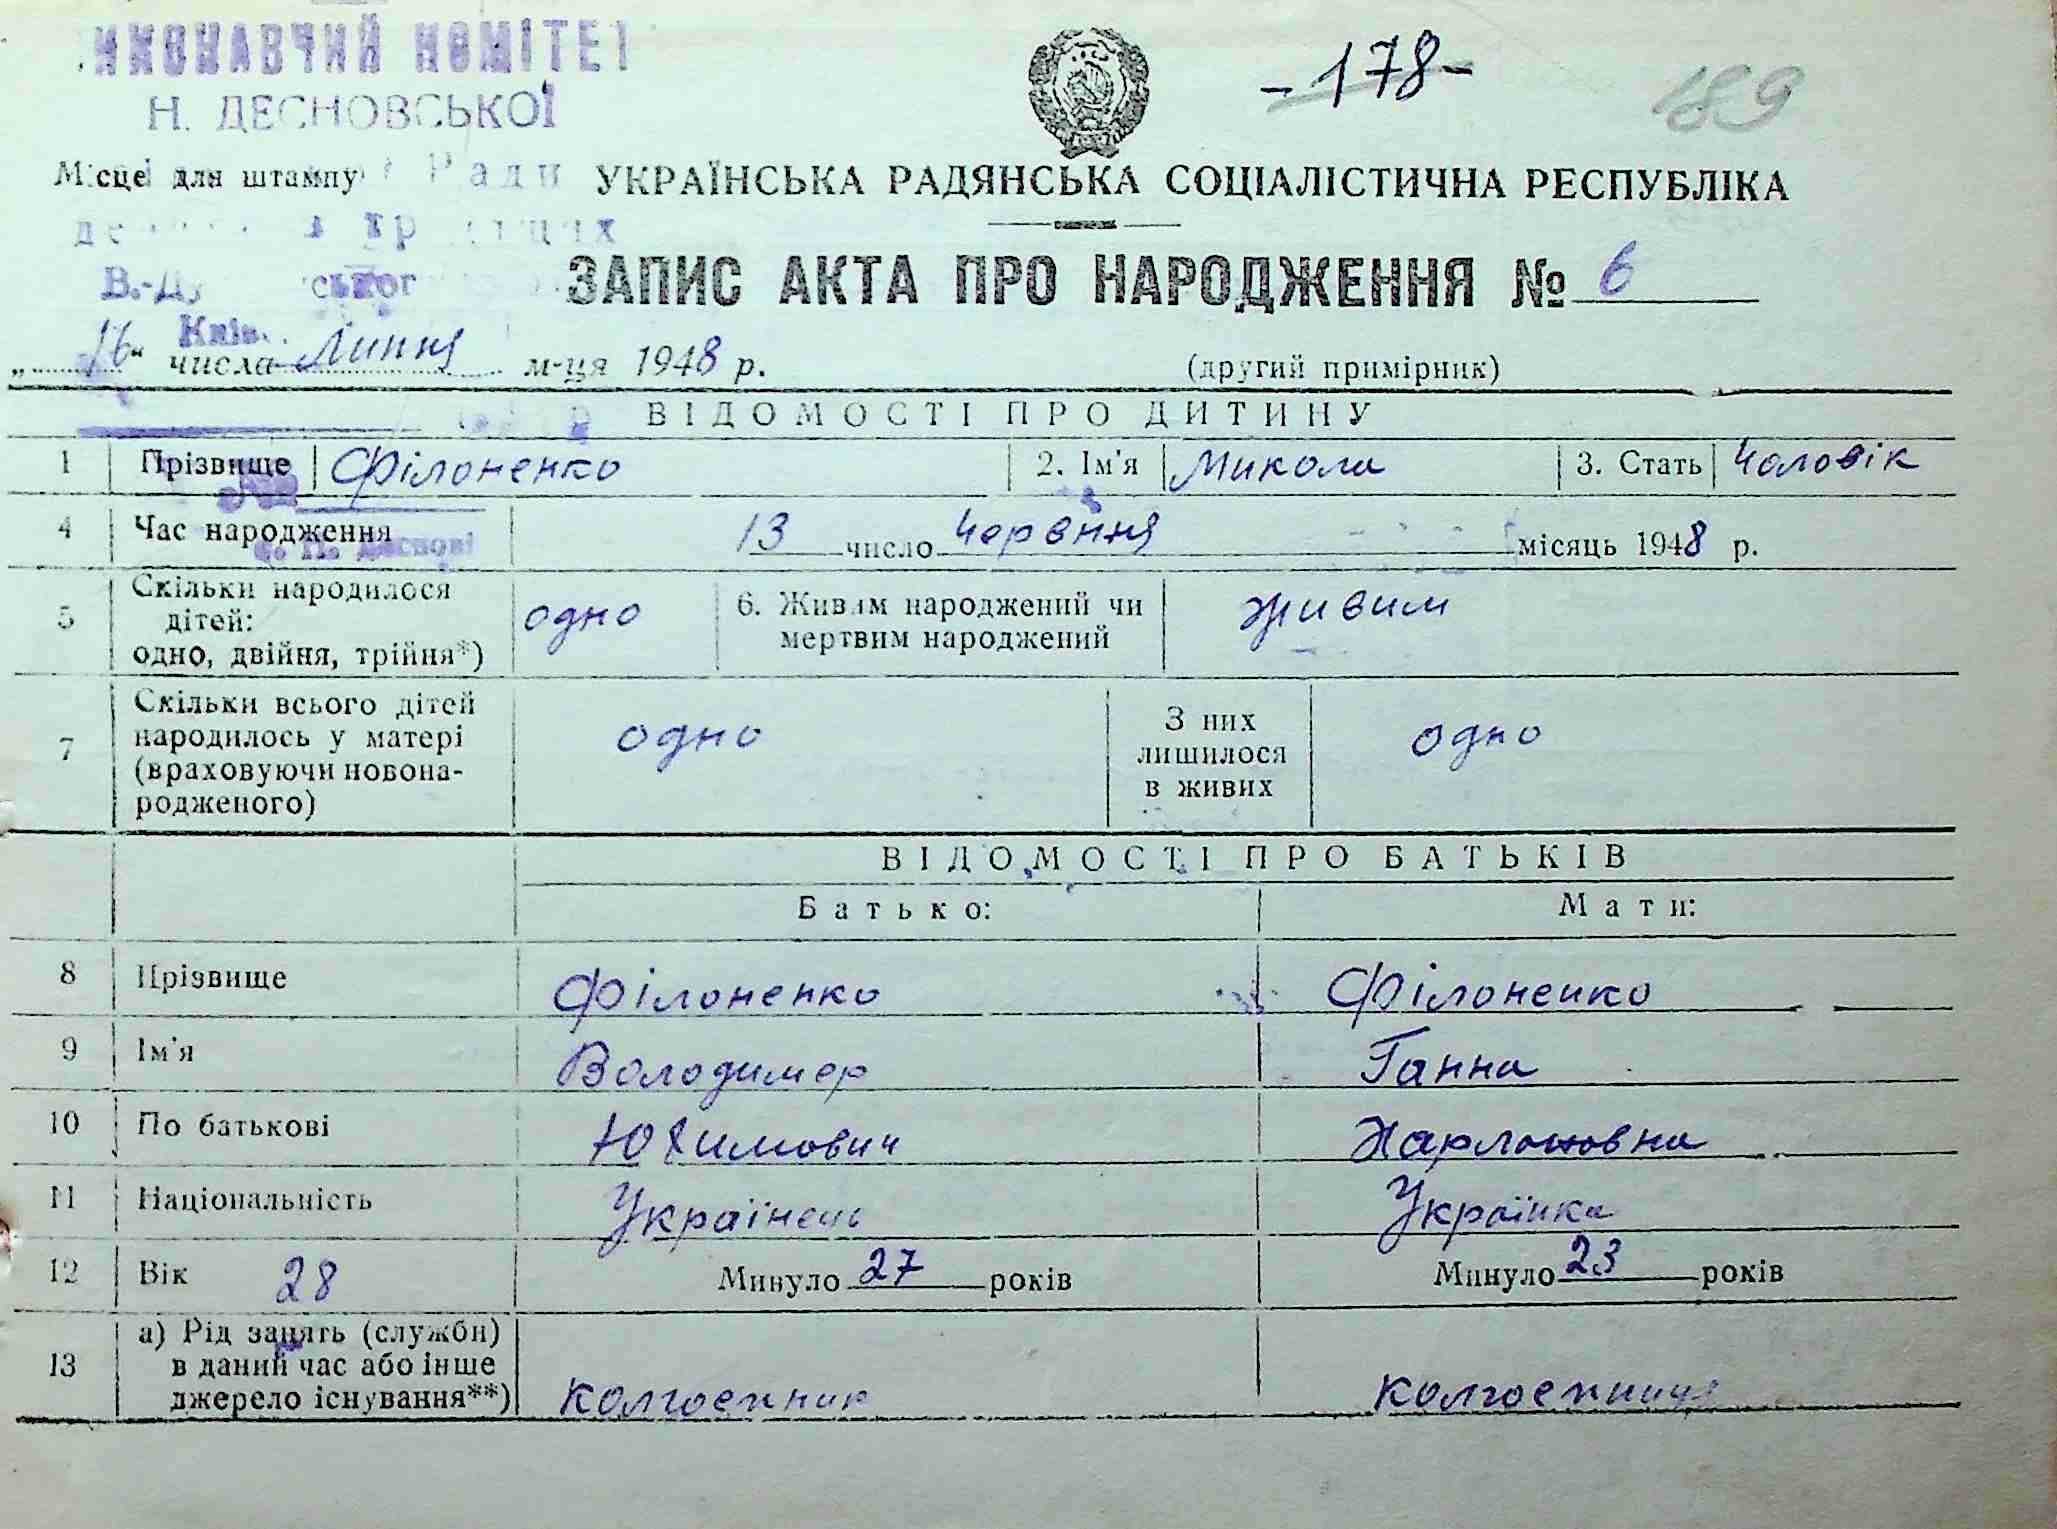 ИКОНАВЧИЙ КОМІТЕТ
Н. ДЕСНОВСЬКОЇ
-178-
189
Місце для штампу Ради
УКРАЇНСЬКА РАДЯНСЬКА СОЦІАЛІСТИЧНА РЕСПУБЛІКА
ЗАПИС АКТА ПРО НАРОДЖЕННЯ № 6
„16“ числа Липня м-ця 1948 р.
(другий примірник)
ВІДОМОСТІ ПРО ДИТИНУ
1 Прізвище Філоненко 2. Ім'я Микола 3. Стать Чоловік
4 Час народження 13 число Червння місяць 1948 р.
5 Скільки народилося дітей: одно, двійня, трійня*) одно 6. Живим народжений чи мертвим народжений живим
7 Скільки всього дітей народилось у матері (враховуючи новонародженого) одно З них лишилося в живих одно
ВІДОМОСТІ ПРО БАТЬКІВ
Батько: Мати:
8 Прізвище Філоненко Філоненко
9 Ім'я Володимер Ганна
10 По батькові Юхимович Харлоновна
11 Національність Українець Українка
12 Вік 28 Минуло 27 років Минуло 23 років
13 а) Рід занять (служби) в даний час або інше джерело існування**) колгоспник колгоспниця